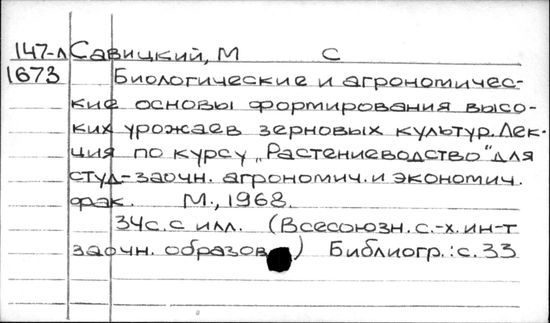 147-л Савицкий, М С
1673 Биологические и агрономичес-
кие основы формирования высо-
ких урожаев зерновых культур. Лек-
ция по курсу „Растениеводство" для
студ-заочн. агрономич. и экономич.
фак. М., 1968.
34с. с илл. (Всесоюзн. с.-х. ин-т
заочн. образов.) Библиогр.: с. 33